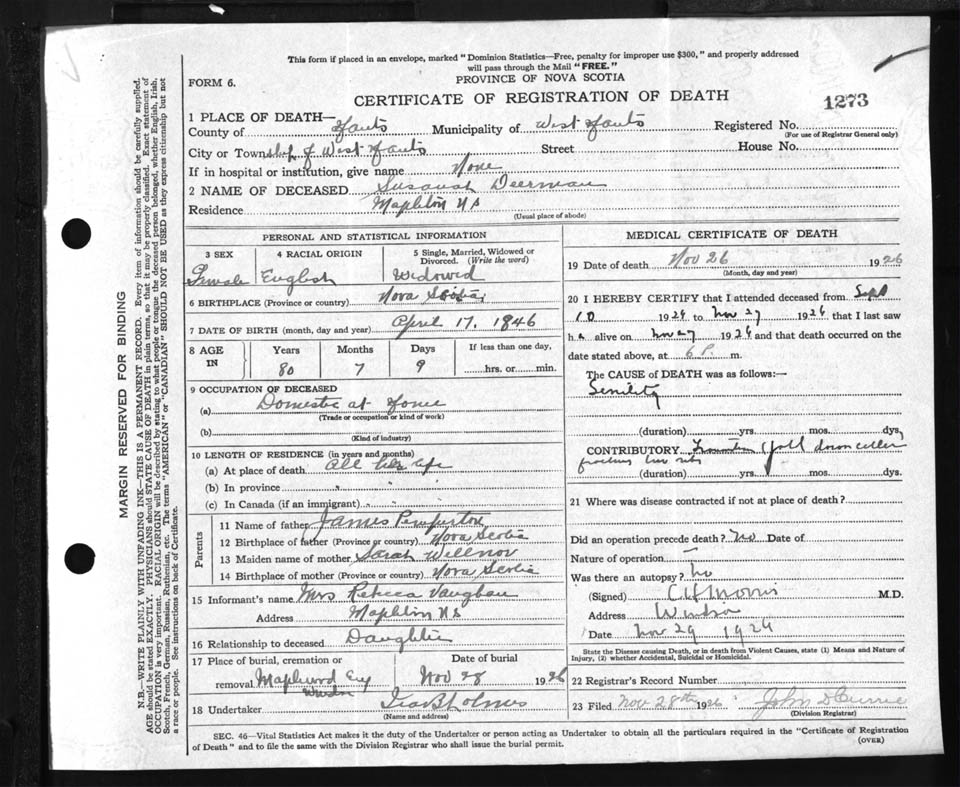 This form if placed in an envelope, marked "Dominion Statistics—Free, penalty for improper use $300," and properly addressed
will pass through the Mail "FREE."
FORM 6.
PROVINCE OF NOVA SCOTIA
CERTIFICATE OF REGISTRATION OF DEATH
1273
1 PLACE OF DEATH—
County of Hants Municipality of West Hants Registered No.
(For use of Registrar General only)
City or Township of West Hants Street House No.
If in hospital or institution, give name None
2 NAME OF DECEASED Susanah Deerman
Residence NS
(Usual place of abode)
PERSONAL AND STATISTICAL INFORMATION
3 SEX Female
4 RACIAL ORIGIN English
5 Single, Married, Widowed or Divorced. (Write the word) Widowed
6 BIRTHPLACE (Province or country) Nova Scotia
7 DATE OF BIRTH (month, day and year) April 17, 1846
8 AGE IN Years 80 Months 7 Days 9 If less than one day, hrs. or min.
9 OCCUPATION OF DECEASED
(a) Domestic at Home
(Trade or occupation or kind of work)
(b)
(Kind of industry)
10 LENGTH OF RESIDENCE (in years and months)
(a) At place of death All her life
(b) In province " "
(c) In Canada (if an immigrant) " "
Parents
11 Name of father James
12 Birthplace of father (Province or country) Nova Scotia
13 Maiden name of mother Sarah
14 Birthplace of mother (Province or country) Nova Scotia
15 Informant's name Mrs Rebecca Vaughan
Address NS
16 Relationship to deceased Daughter
17 Place of burial, cremation or removal Windsor
Date of burial Nov 28 1926
18 Undertaker Ira B Holmes
(Name and address)
MEDICAL CERTIFICATE OF DEATH
19 Date of death Nov 26 1926
(Month, day and year)
20 I HEREBY CERTIFY that I attended deceased from Sept
10 1926 to Nov 27 1926 that I last saw
h alive on Nov 27 1926 and that death occurred on the
date stated above, at 6 P. m.
The CAUSE of DEATH was as follows:—
Senility
(duration) yrs. mos. dys.
CONTRIBUTORY fall down cellar
fracturing two ribs
(duration) yrs. mos. dys.
21 Where was disease contracted if not at place of death?
Did an operation precede death? No Date of
Nature of operation —
Was there an autopsy? No
(Signed) Morris M.D.
Address Windsor
Date Nov 29 1926
State the Disease causing Death, or in death from Violent Causes, state (1) Means and Nature of
Injury, (2) whether Accidental, Suicidal or Homicidal.
22 Registrar's Record Number
23 Filed Nov 28th 1926 John D Currie
(Division Registrar)
SEC. 46—Vital Statistics Act makes it the duty of the Undertaker or person acting as Undertaker to obtain all the particulars required in the "Certificate of Registration
of Death" and to file the same with the Division Registrar who shall issue the burial permit.
(OVER)
MARGIN RESERVED FOR BINDING
N.B.—WRITE PLAINLY WITH UNFADING INK—THIS IS A PERMANENT RECORD. Every item of information should be carefully supplied.
AGE should be stated EXACTLY. PHYSICIANS should STATE CAUSE OF DEATH in plain terms, so that it may be properly classified. Exact statement of
OCCUPATION is very important. RACIAL ORIGIN will be described by stating to what people or tongue the deceased person belonged, whether English, Irish,
Scotch, French, German, Russian, Ruthenian, etc. The terms "AMERICAN" or "CANADIAN" SHOULD NOT BE USED as they express citizenship but not
a race or people. See instructions on back of Certificate.